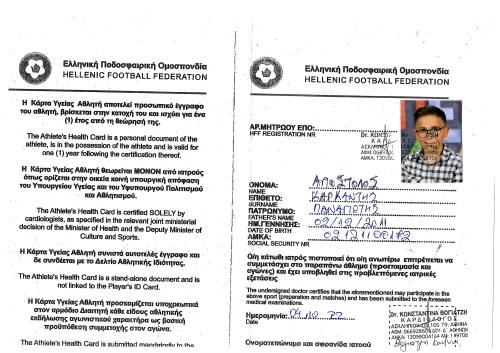 Ελληνική Ποδοσφαιρική Ομοσπονδία
HELLENIC FOOTBALL FEDERATION
Η Κάρτα Υγείας Αθλητή αποτελεί προσωπικό έγγραφο
του αθλητή, βρίσκεται στην κατοχή του και ισχύει για ένα
(1) έτος από τη θεώρησή της.
The Athlete's Health Card is a personal document of the
athlete, is in the possession of the athlete and is valid for
one (1) year following the certification thereof.
Η Κάρτα Υγείας Αθλητή θεωρείται ΜΟΝΟΝ από ιατρούς
όπως ορίζεται στην οικεία κοινή υπουργική απόφαση
του Υπουργείου Υγείας και του Υφυπουργού Πολιτισμού
και Αθλητισμού.
The Athlete's Health Card is certified SOLELY by
cardiologists, as specified in the relevant joint ministerial
decision of the Minister of Health and the Deputy Minister of
Culture and Sports.
Η Κάρτα Υγείας Αθλητή συνιστά αυτοτελές έγγραφο και
δε συνδέεται με το Δελτίο Αθλητικής Ιδιότητας.
The Athlete's Health Card is a stand-alone document and is
not linked to the Player's ID Card.
Η Κάρτα Υγείας Αθλητή προσκομίζεται υποχρεωτικά
στον αρμόδιο Διαιτητή κάθε είδους αθλητικής
εκδήλωσης αγωνιστικού χαρακτήρα ως βασική
προϋπόθεση συμμετοχής στον αγώνα.
The Athlete's Health Card is submitted mandatory to the
Ελληνική Ποδοσφαιρική Ομοσπονδία
HELLENIC FOOTBALL FEDERATION
ΑΡ.ΜΗΤΡΩΟΥ ΕΠΟ:
HFF REGISTRATION NR
ΟΝΟΜΑ: ΑΠΟΣΤΟΛΟΣ
NAME
ΕΠΙΘΕΤΟ:
SURNAME
ΠΑΤΡΩΝΥΜΟ: ΠΑΝΑΓΙΩΤΗΣ
FATHER'S NAME
ΗΜ.ΓΕΝΝΗΣΗΣ: 02/12/2011
DATE OF BIRTH
ΑΜΚΑ:
SOCIAL SECURITY NR
Ο/η κάτωθι ιατρός πιστοποιεί ότι ο/η ανωτέρω επιτρέπεται να
συμμετάσχει στο παραπάνω άθλημα (προετοιμασία και
αγώνες) και έχει υποβληθεί στις προβλεπόμενες ιατρικές
εξετάσεις
The undersigned doctor certifies that the aforementioned may participate in the
above sport (preparation and matches) and has been submitted to the foreseen
medical examinations.
Ημερομηνία:
Date
Dr. ΚΩΝΣΤΑΝΤΙΝΑ ΒΟΓΙΑΤΖΗ
ΚΑΡΔΙΟΛΟΓΟΣ
Ονοματεπώνυμο και σφραγίδα ιατρού